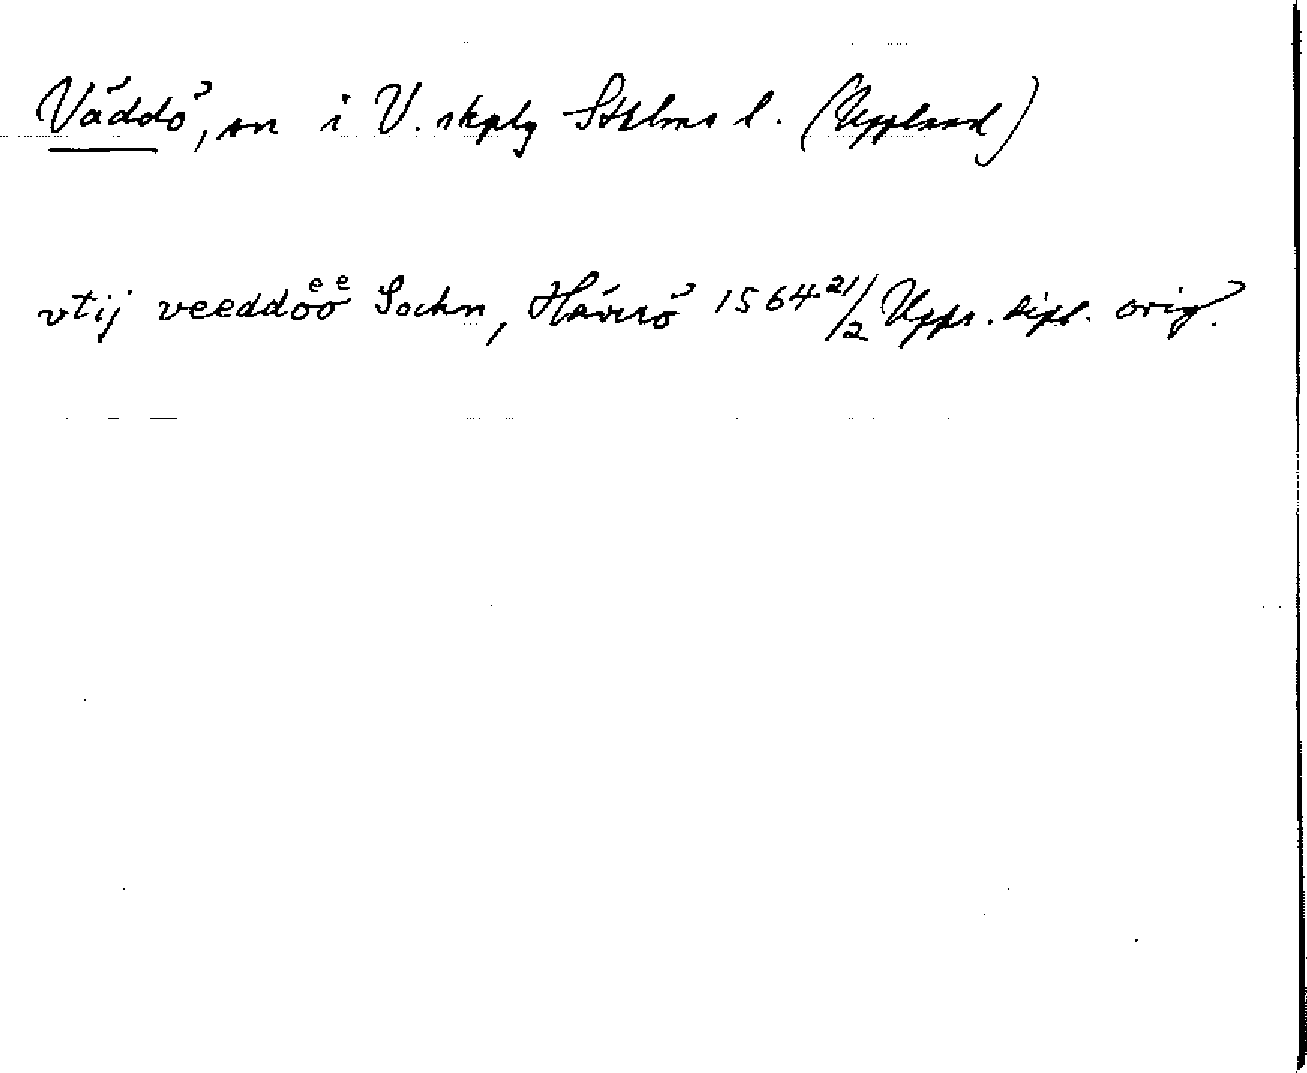 Väddö, sn i V. skplg Sthlms l. (Uppland)
vtij veeddoͤoͤ Sochn, Häverö 1564 21/2 Upps. dipl. orig.